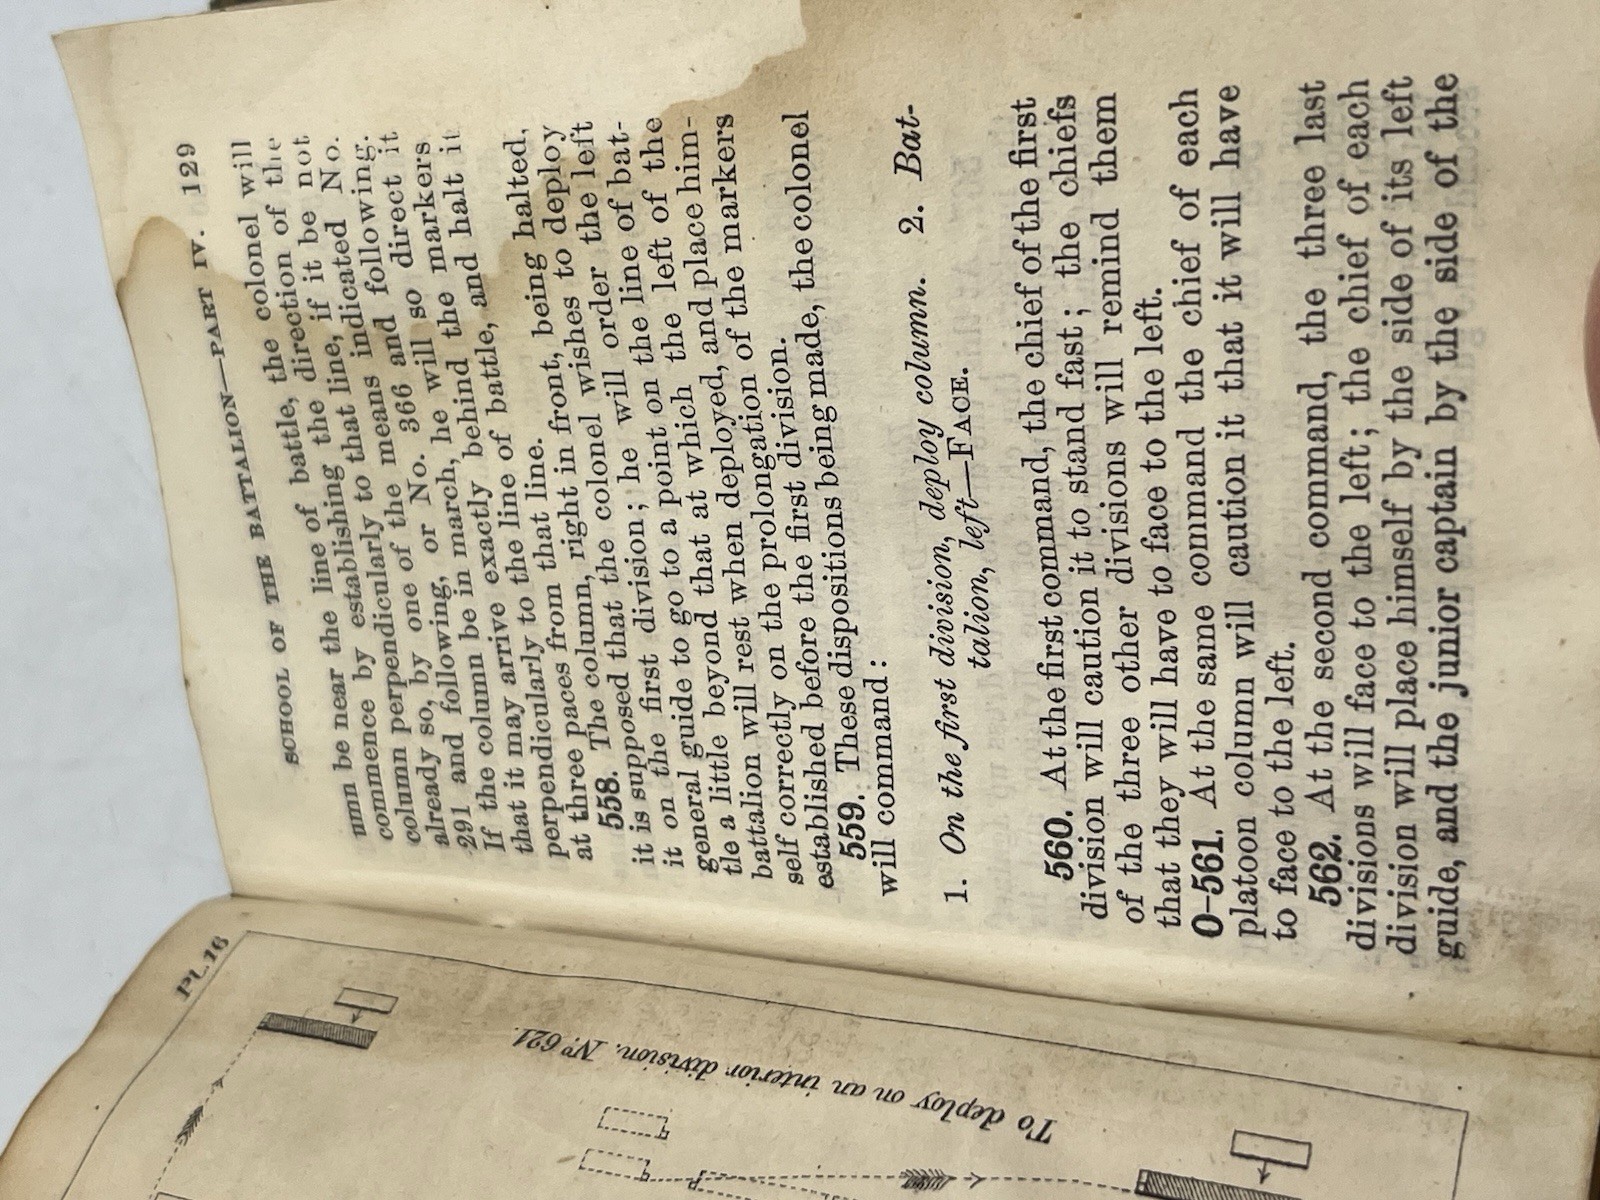 SCHOOL OF THE BATTALION—PART IV. 129
umn be near the line of battle, the colonel will
commence by establishing the direction of the
column perpendicularly to that line, if it be not
already so, by one of the means indicated No.
291 and following, or No. 366 and following.
If the column be in march, he will so direct it
that it may arrive exactly behind the markers
perpendicularly to the line of battle, and halt it
at three paces from that line.
558. The column, right in front, being halted,
it is supposed that the colonel wishes to deploy
it on the first division; he will order the left
general guide to go to a point on the line of bat-
tle a little beyond that at which the left of the
battalion will rest when deployed, and place him-
self correctly on the prolongation of the markers
established before the first division.
559. These dispositions being made, the colonel
will command:
1. On the first division, deploy column. 2. Bat-
talion, left—FACE.
560. At the first command, the chief of the first
division will caution it to stand fast; the chiefs
of the three other divisions will remind them
that they will have to face to the left.
0-561. At the same command the chief of each
platoon column will caution it that it will have
to face to the left.
562. At the second command, the three last
divisions will face to the left; the chief of each
division will place himself by the side of its left
guide, and the junior captain by the side of the
PL.16
To deploy on an interior division. No. 621.